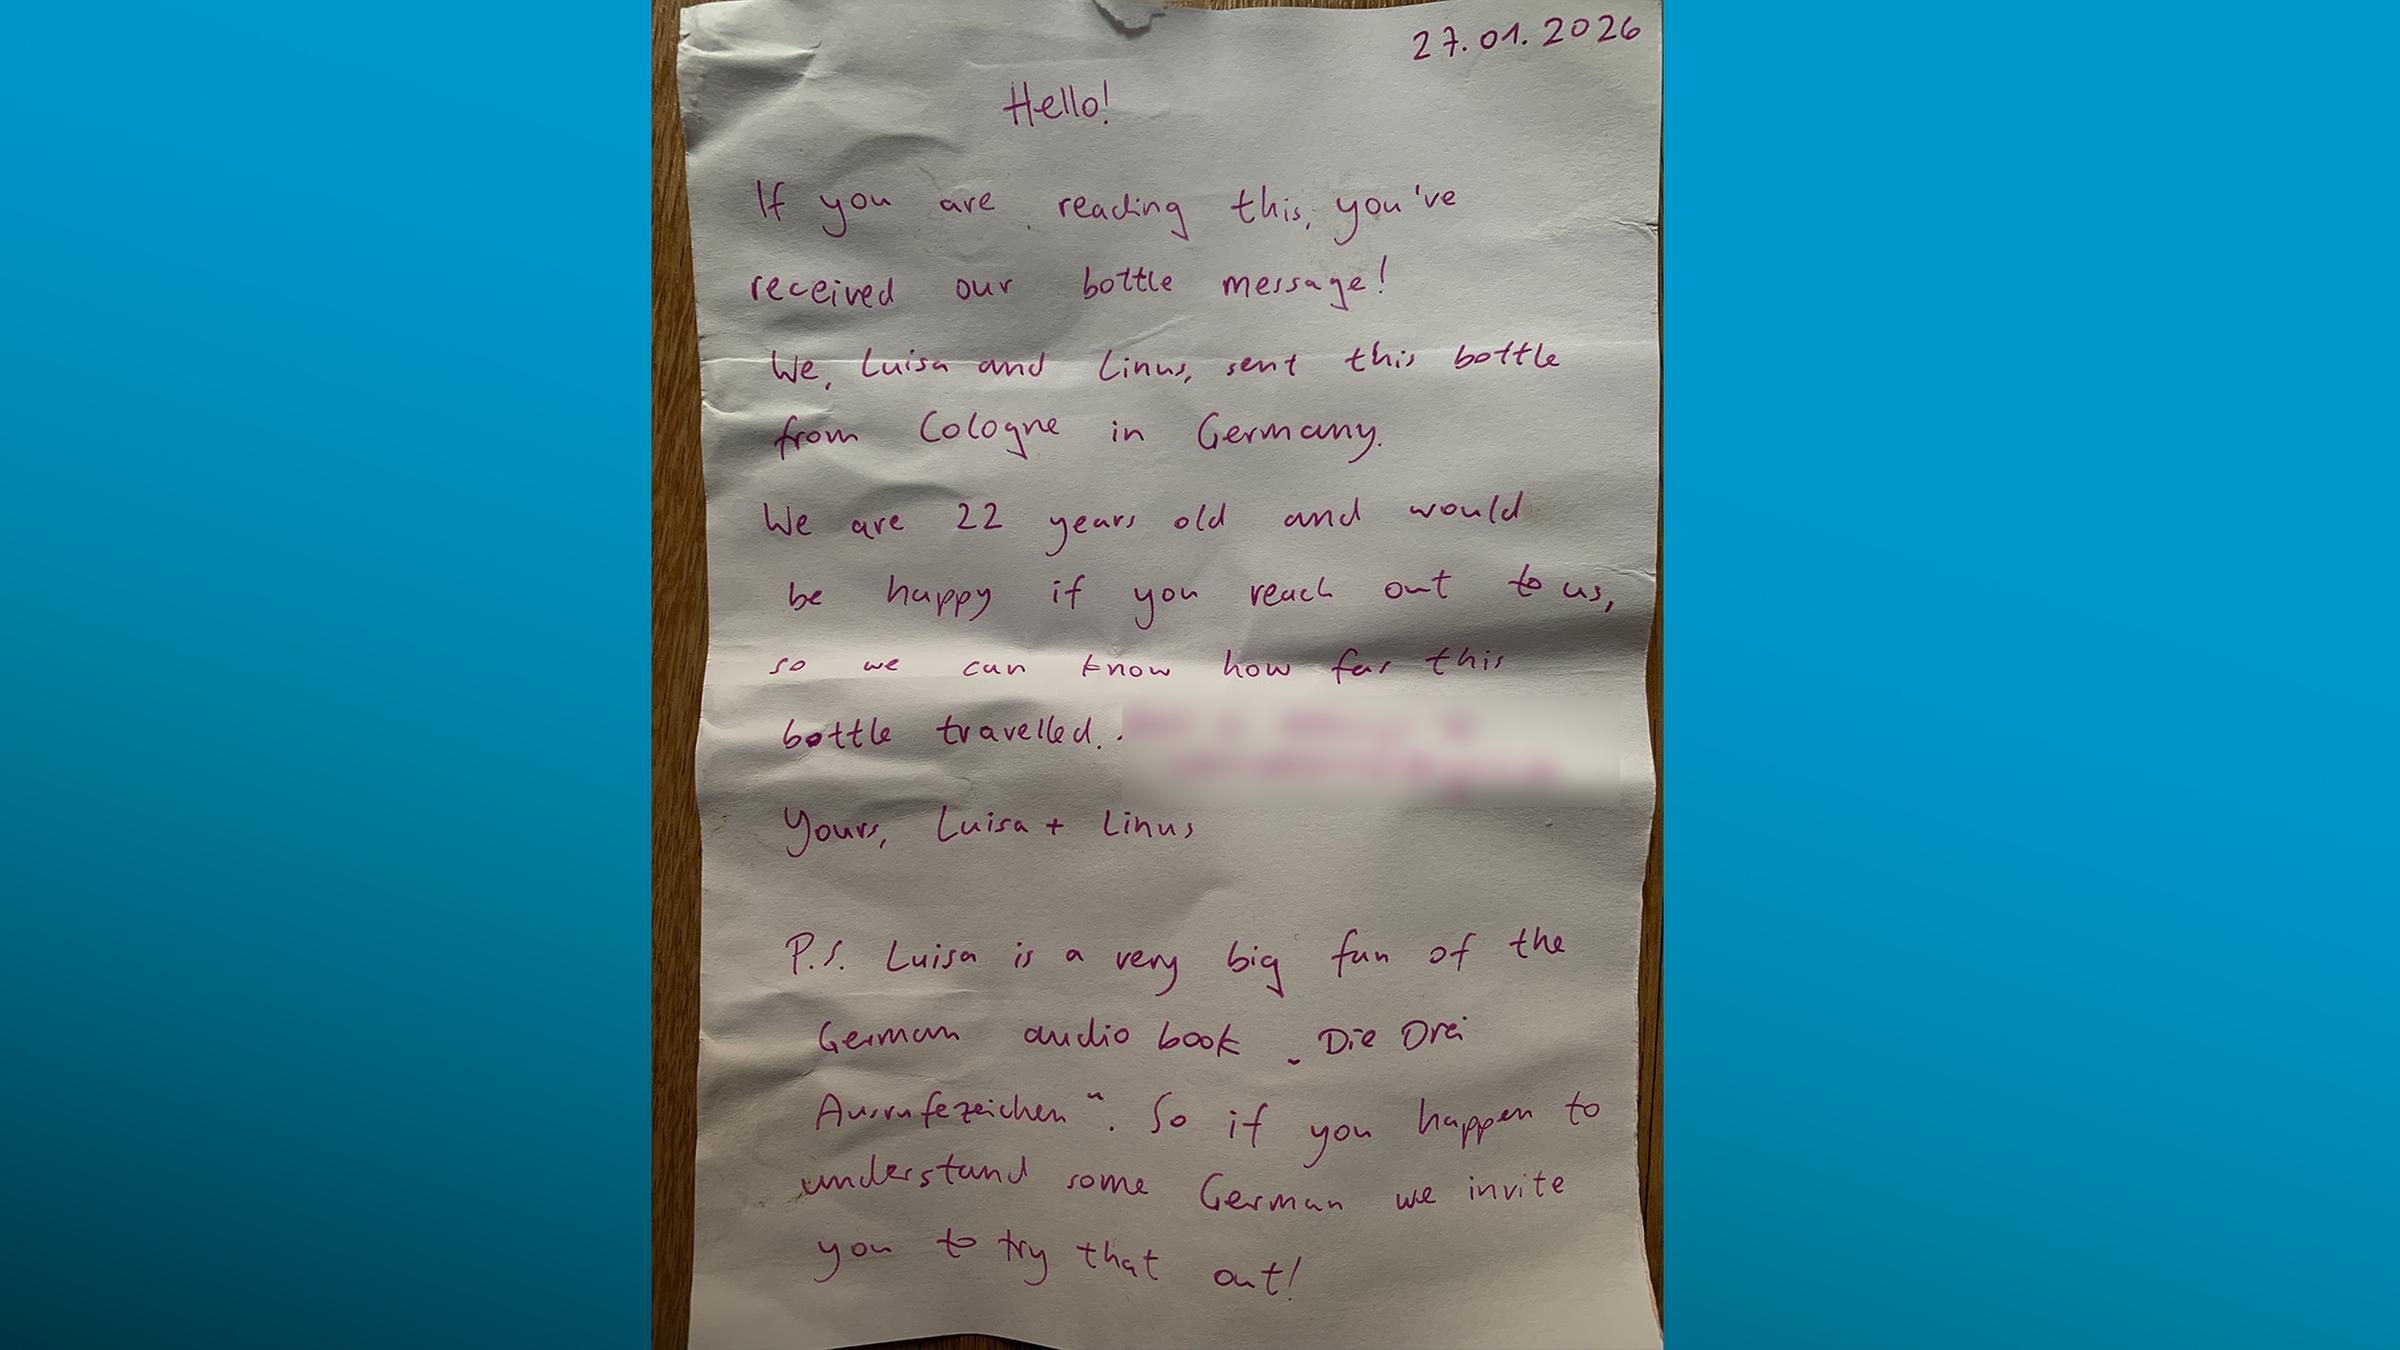 27.01.2026
Hello!
If you are reading this, you've
received our bottle message!
We, Luisa and Linus, sent this bottle
from Cologne in Germany.
We are 22 years old and would
be happy if you reach out to us,
so we can know how far this
bottle travelled.
Yours, Luisa + Linus
P.S. Luisa is a very big fan of the
German audio book „Die Drei
Ausrufezeichen“. So if you happen to
understand some German we invite
you to try that out!